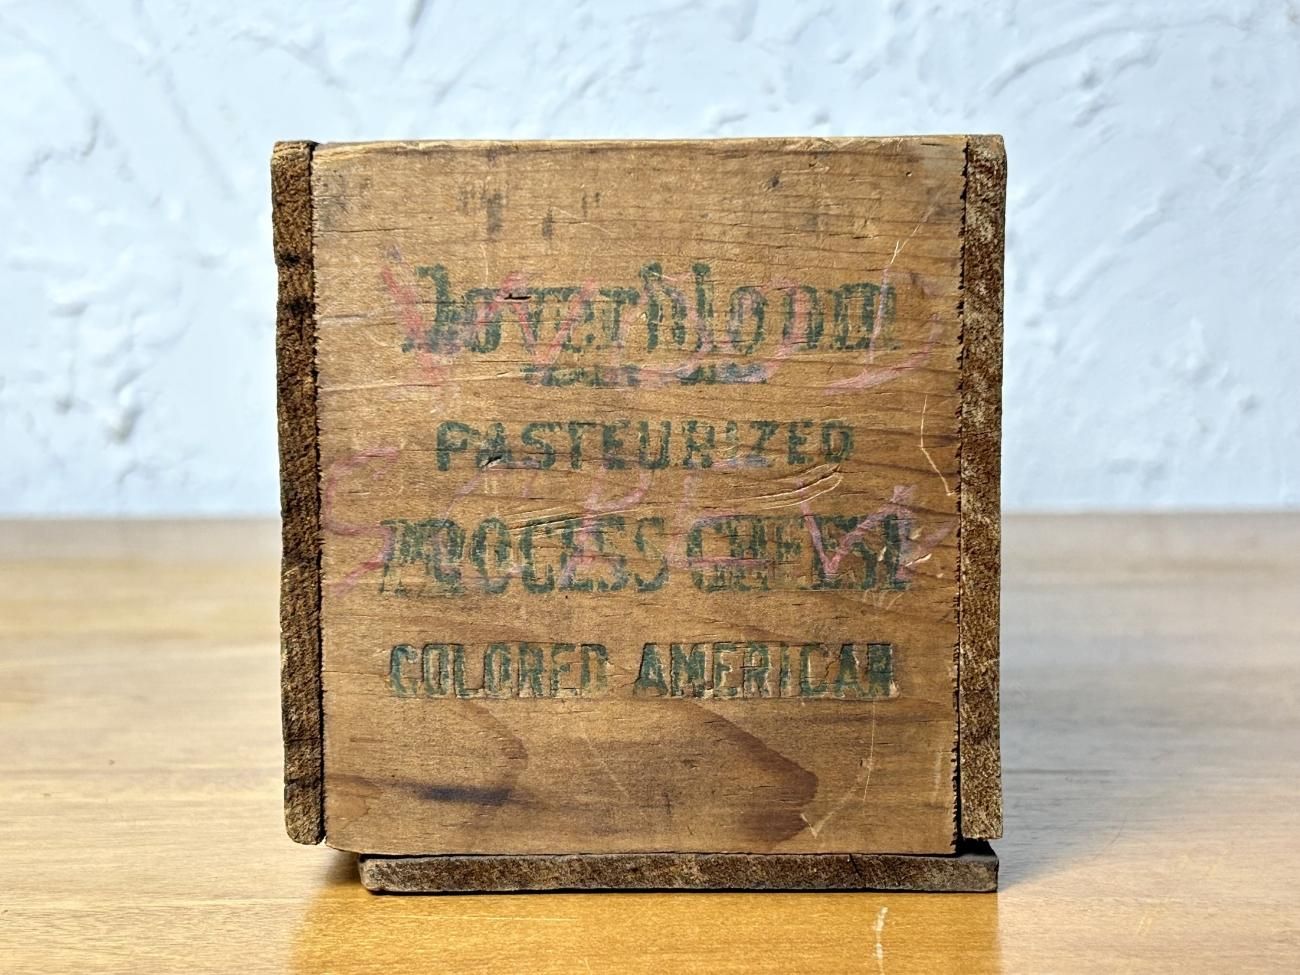 Loverbloom
PASTEURIZED
PROCESS CHEESE
COLORED AMERICAN